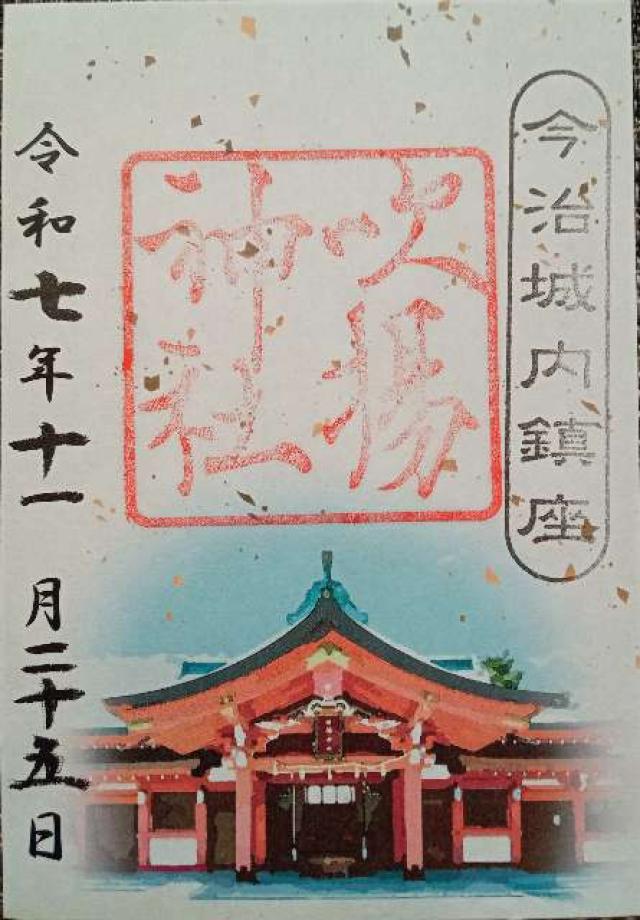 今治城内鎮座
吹揚
神社
令和七年十一月二十五日